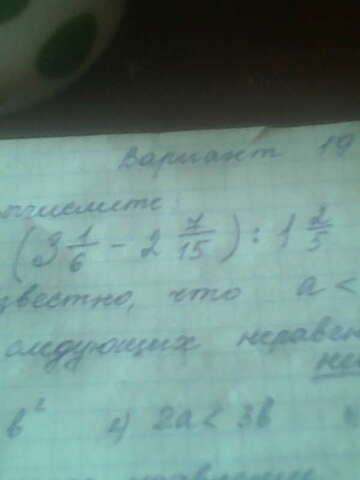 Вариант 19
числите:
(3 1/6 - 2 7/15) : 1 2/5
звестно, что a <
следующих неравен
не
b² 4) 2a < 3b